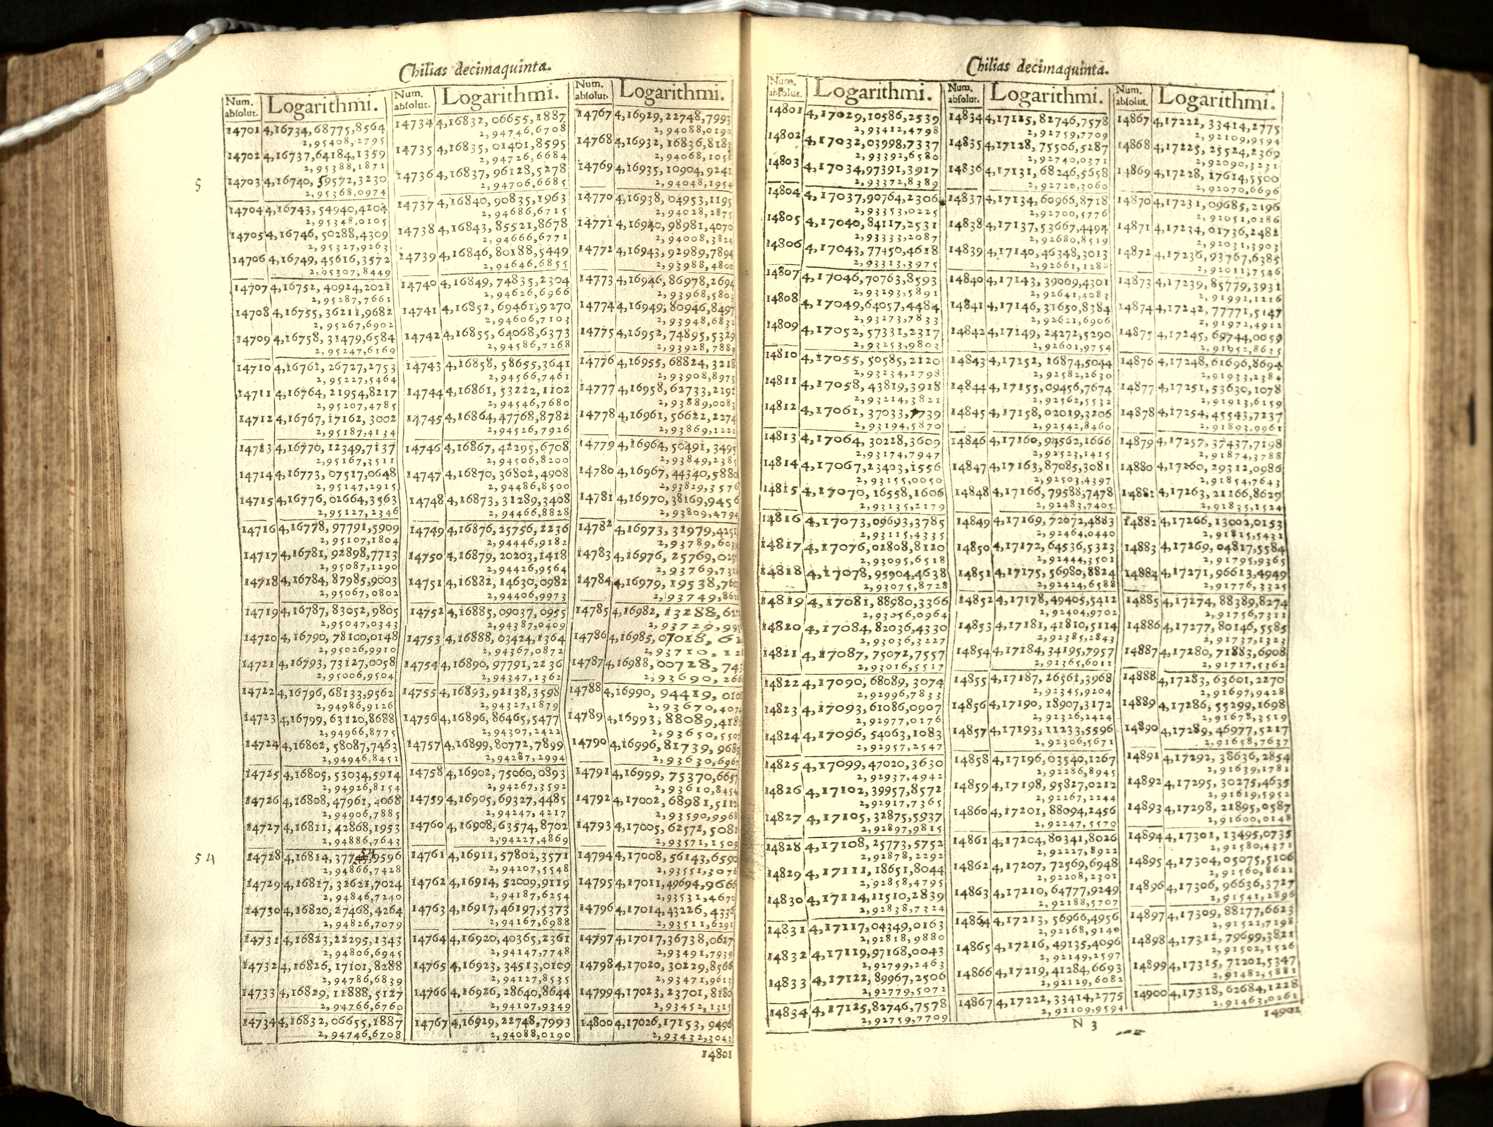 Chilias decimaquinta.
Num. absolut. Logarithmi.
14701 4,16734,68775,8564
2,95408,2795
14702 4,16737,64184,1359
2,95388,1871
14703 4,16740,59572,3230
2,95368,0974
14704 4,16743,54940,4204
2,95348,0105
14705 4,16746,50288,4309
2,95327,9263
14706 4,16749,45616,3572
2,95307,8449
14707 4,16752,40924,2021
2,95287,7661
14708 4,16755,36211,9682
2,95267,6902
14709 4,16758,31479,6584
2,95247,6169
14710 4,16761,26727,2753
2,95227,5464
14711 4,16764,21954,8217
2,95207,4785
14712 4,16767,17162,3002
2,95187,4134
14713 4,16770,12349,7137
2,95167,3511
14714 4,16773,07517,0648
2,95147,2915
14715 4,16776,02664,3563
2,95127,2346
14716 4,16778,97791,5909
2,95107,1804
14717 4,16781,92898,7713
2,95087,1290
14718 4,16784,87985,9003
2,95067,0802
14719 4,16787,83052,9805
2,95047,0343
14720 4,16790,78100,0148
2,95026,9910
14721 4,16793,73127,0058
2,95006,9504
14722 4,16796,68133,9562
2,94986,9126
14723 4,16799,63120,8688
2,94966,8775
14724 4,16802,58087,7463
2,94946,8451
14725 4,16805,53034,5914
2,94926,8154
14726 4,16808,47961,4068
2,94906,7885
14727 4,16811,42868,1953
2,94886,7643
14728 4,16814,377 54 ,9596
2,94866,7428
14729 4,16817,32621,7024
2,94846,7240
14730 4,16820,27468,4264
2,94826,7079
14731 4,16823,22295,1343
2,94806,6945
14732 4,16826,17101,8288
2,94786,6839
14733 4,16829,11888,5127
2,94766,6760
14734 4,16832,06655,1887
2,94746,6708
5
54
Num. absolut. Logarithmi.
14734 4,16832,06655,1887
2,94746,6708
14735 4,16835,01401,8595
2,94726,6684
14736 4,16837,96128,5278
2,94706,6685
14737 4,16840,90835,1963
2,94686,6715
14738 4,16843,85521,8678
2,94666,6771
14739 4,16846,80188,5449
2,94646,6855
14740 4,16849,74835,2304
2,94626,6966
14741 4,16852,69461,9270
2,94606,7103
14742 4,16855,64068,6373
2,94586,7268
14743 4,16858,58655,3641
2,94566,7461
14744 4,16861,53222,1102
2,94546,7680
14745 4,16864,47768,8782
2,94526,7926
14746 4,16867,42295,6708
2,94506,8200
14747 4,16870,36802,4908
2,94486,8500
14748 4,16873,31289,3408
2,94466,8828
14749 4,16876,25756,2236
2,94446,9182
14750 4,16879,20203,1418
2,94426,9564
14751 4,16882,14630,0982
2,94406,9973
14752 4,16885,09037,0955
2,94387,0409
14753 4,16888,03424,1364
2,94367,0872
14754 4,16890,97791,2236
2,94347,1362
14755 4,16893,92138,3598
2,94327,1879
14756 4,16896,86465,5477
2,94307,2422
14757 4,16899,80772,7899
2,94287,2994
14758 4,16902,75060,0893
2,94267,3592
14759 4,16905,69327,4485
2,94247,4217
14760 4,16908,63574,8702
2,94227,4869
14761 4,16911,57802,3571
2,94207,5548
14762 4,16914,52009,9119
2,94187,6254
14763 4,16917,46197,5373
2,94167,6988
14764 4,16920,40365,2361
2,94147,7748
14765 4,16923,34513,0109
2,94127,8535
14766 4,16926,28640,8644
2,94107,9349
14767 4,16929,22748,7993
2,94088,0190
Num. absolut. Logarithmi.
14767 4,16929,22748,7993
2,94088,0190
14768 4,16932,16836,8183
2,94068,105
14769 4,16935,10904,9241
2,94048,1954
14770 4,16938,04953,1195
2,94028,2875
14771 4,16940,98981,4070
2,94008,382
14772 4,16943,92989,7894
2,93988,4800
14773 4,16946,86978,2694
2,93968,580
14774 4,16949,80946,8497
2,93948,683
14775 4,16952,74895,5329
2,93928,788
14776 4,16955,68824,3218
2,93908,8973
14777 4,16958,62733,2191
2,93889,0083
14778 4,16961,56622,2274
2,93869,1221
14779 4,16964,50491,3495
2,93849,238
14780 4,16967,44340,5880
2,93829,3576
14781 4,16970,38169,9456
2,93809,4794
14782 4,16973,31979,4251
2,93789,603
14783 4,16976,25769,02
2,93769,73
14784 4,16979,19538,76
2,93749,86
14785 4,16982,13288,6
2,93729,99
14786 4,16985,07018,6
2,93710,12
14787 4,16988,00728,74
2,93690,26
14788 4,16990,94419,010
2,93670,407
14789 4,16993,88089,418
2,93650,550
14790 4,16996,81739,968
2,93630,696
14791 4,16999,75370,6657
2,93610,8454
14792 4,17002,68981,511
2,93590,9968
14793 4,17005,62572,508
2,93571,1509
14794 4,17008,56143,6590
2,93551,3076
14795 4,17011,49694,9666
2,93532,4670
14796 4,17014,43226,4336
2,93511,6291
14797 4,17017,36738,0627
2,93491,7939
14798 4,17020,30229,8566
2,93471,9613
14799 4,17023,23701,8180
2,93452,1315
14800 4,17026,17153,9496
2,93432,3043
14801
Chilias decimaquinta.
Num. absolut. Logarithmi.
14801 4,17029,10586,2539
2,93412,4798
14802 4,17032,03998,7337
2,93392,6580
14803 4,17034,97391,3917
2,93372,8389
14804 4,17037,90764,2306
2,93353,0225
14805 4,17040,84117,2531
2,93333,2087
14806 4,17043,77450,4618
2,93313,3975
14807 4,17046,70763,8593
2,93293,5891
14808 4,17049,64057,4484
2,93273,7833
14809 4,17052,57331,2317
2,93253,9803
14810 4,17055,50585,2120
2,93234,1798
14811 4,17058,43819,3918
2,93214,3821
14812 4,17061,37033,7739
2,93194,5870
14813 4,17064,30228,3609
2,93174,7947
14814 4,17067,23403,1556
2,93155,0050
14815 4,17070,16558,1606
2,93135,2179
14816 4,17073,09693,3785
2,93115,4335
14817 4,17076,02808,8120
2,93095,6518
14818 4,17078,95904,4638
2,93075,8728
14819 4,17081,88980,3366
2,93056,0964
14820 4,17084,82036,4330
2,93036,3227
14821 4,17087,75072,7557
2,93016,5517
14822 4,17090,68089,3074
2,92996,7833
14823 4,17093,61086,0907
2,92977,0176
14824 4,17096,54063,1083
2,92957,2547
14825 4,17099,47020,3630
2,92937,4942
14826 4,17102,39957,8572
2,92917,7365
14827 4,17105,32875,5937
2,92897,9815
14828 4,17108,25773,5752
2,92878,2292
14829 4,17111,18651,8044
2,92858,4795
14830 4,17114,11510,2839
2,92838,7324
14831 4,17117,04349,0163
2,92818,9880
14832 4,17119,97168,0043
2,92799,2463
14833 4,17122,89967,2506
2,92779,5072
14834 4,17125,82746,7578
2,92759,7709
Num. absolut. Logarithmi.
14834 4,17125,82746,7578
2,92759,7709
14835 4,17128,75506,5287
2,92740,0371
14836 4,17131,68246,5658
2,92720,3060
14837 4,17134,60966,8718
2,92700,5776
14838 4,17137,53667,4494
2,92680,8519
14839 4,17140,46348,3013
2,92661,1288
14840 4,17143,39009,4301
2,92641,4083
14841 4,17146,31650,8384
2,92621,6906
14842 4,17149,24272,5290
2,92601,9754
14843 4,17152,16874,5044
2,92582,2630
14844 4,17155,09456,7674
2,92562,5532
14845 4,17158,02019,3206
2,92542,8460
14846 4,17160,94562,1666
2,92523,1415
14847 4,17163,87085,3081
2,92503,4397
14848 4,17166,79588,7478
2,92483,7405
14849 4,17169,72072,4883
2,92464,0440
14850 4,17172,64536,5323
2,92444,3501
14851 4,17175,56980,8824
2,92424,6588
14852 4,17178,49405,5412
2,92404,9702
14853 4,17181,41810,5114
2,92385,2843
14854 4,17184,34195,7957
2,92365,6011
14855 4,17187,26561,3968
2,92345,9204
14856 4,17190,18907,3172
2,92326,2424
14857 4,17193,11233,5596
2,92306,5671
14858 4,17196,03540,1267
2,92286,8945
14859 4,17198,95827,0212
2,92267,2244
14860 4,17201,88094,2456
2,92247,5570
14861 4,17204,80341,8026
2,92227,8922
14862 4,17207,72569,6948
2,92208,2301
14863 4,17210,64777,9249
2,92188,5707
14864 4,17213,56966,4956
2,92168,9140
14865 4,17216,49135,4096
2,92149,2597
14866 4,17219,41284,6693
2,92129,6082
14867 4,17222,33414,2775
2,92109,9594
Num. absolut. Logarithmi.
14867 4,17222,33414,2775
2,92109,9594
14868 4,17225,25524,2369
2,92090,3231
14869 4,17228,17614,5500
2,92070,6696
14870 4,17231,09685,2196
2,92051,0286
14871 4,17234,01736,2482
2,92031,3903
14872 4,17236,93767,6385
2,92011,7546
14873 4,17239,85779,3931
2,91992,1216
14874 4,17242,77771,5147
2,91972,4912
14875 4,17245,69744,0059
2,91952,8635
14876 4,17248,61696,8694
2,91933,2384
14877 4,17251,53630,1078
2,91913,6159
14878 4,17254,45543,7237
2,91893,9961
14879 4,17257,37437,7198
2,91874,3788
14880 4,17260,29312,0986
2,91854,7643
14881 4,17263,21166,8629
2,91835,1524
14882 4,17266,13002,0153
2,91815,5431
14883 4,17269,04817,5584
2,91795,9365
14884 4,17271,96613,4949
2,91776,3325
14885 4,17274,88389,8274
2,91756,7311
14886 4,17277,80146,5585
2,91737,1323
14887 4,17280,71883,6908
2,91717,5362
14888 4,17283,63601,2270
2,91697,9428
14889 4,17286,55299,1698
2,91678,3519
14890 4,17289,46977,5217
2,91658,7637
14891 4,17292,38636,2854
2,91639,1781
14892 4,17295,30275,4635
2,91619,5952
14893 4,17298,21895,0587
2,91600,0148
14894 4,17301,13495,0735
2,91580,4371
14895 4,17304,05075,5106
2,91560,8621
14896 4,17306,96636,3727
2,91541,2896
14897 4,17309,88177,6623
2,91521,7198
14898 4,17312,79699,3821
2,91502,1526
14899 4,17315,71201,5347
2,91482,5881
14900 4,17318,62684,1228
2,91463,0261
N 3
14901